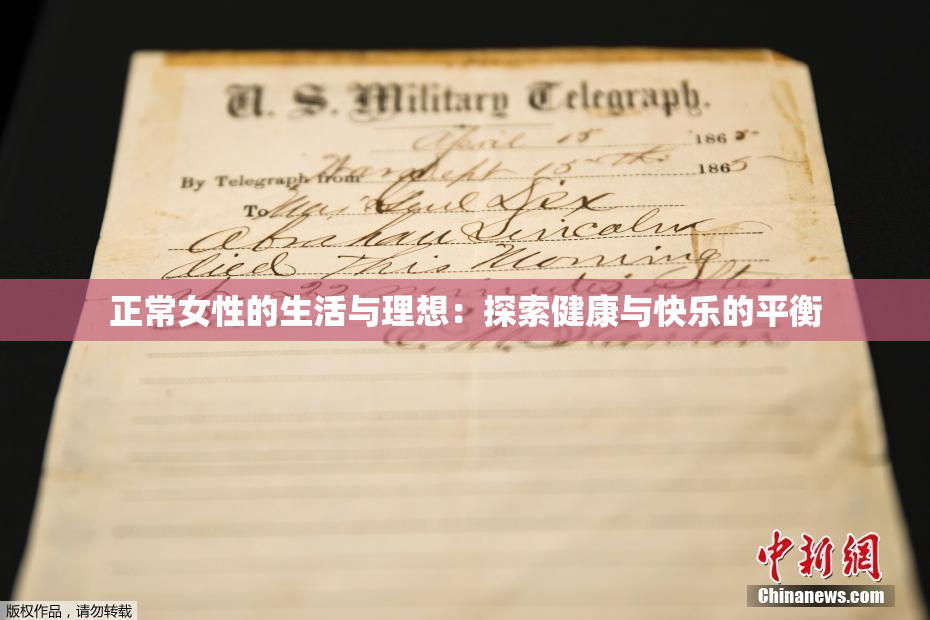 U. S. Military Telegraph.
April 15 1865
By Telegraph from War Dept 15th 1865
To Maj Genl Dix
Abraham Lincoln
died This Morning
at 22 minutes after
正常女性的生活与理想：探索健康与快乐的平衡
E. M. Stanton
中新网
Chinanews.com
版权作品，请勿转载